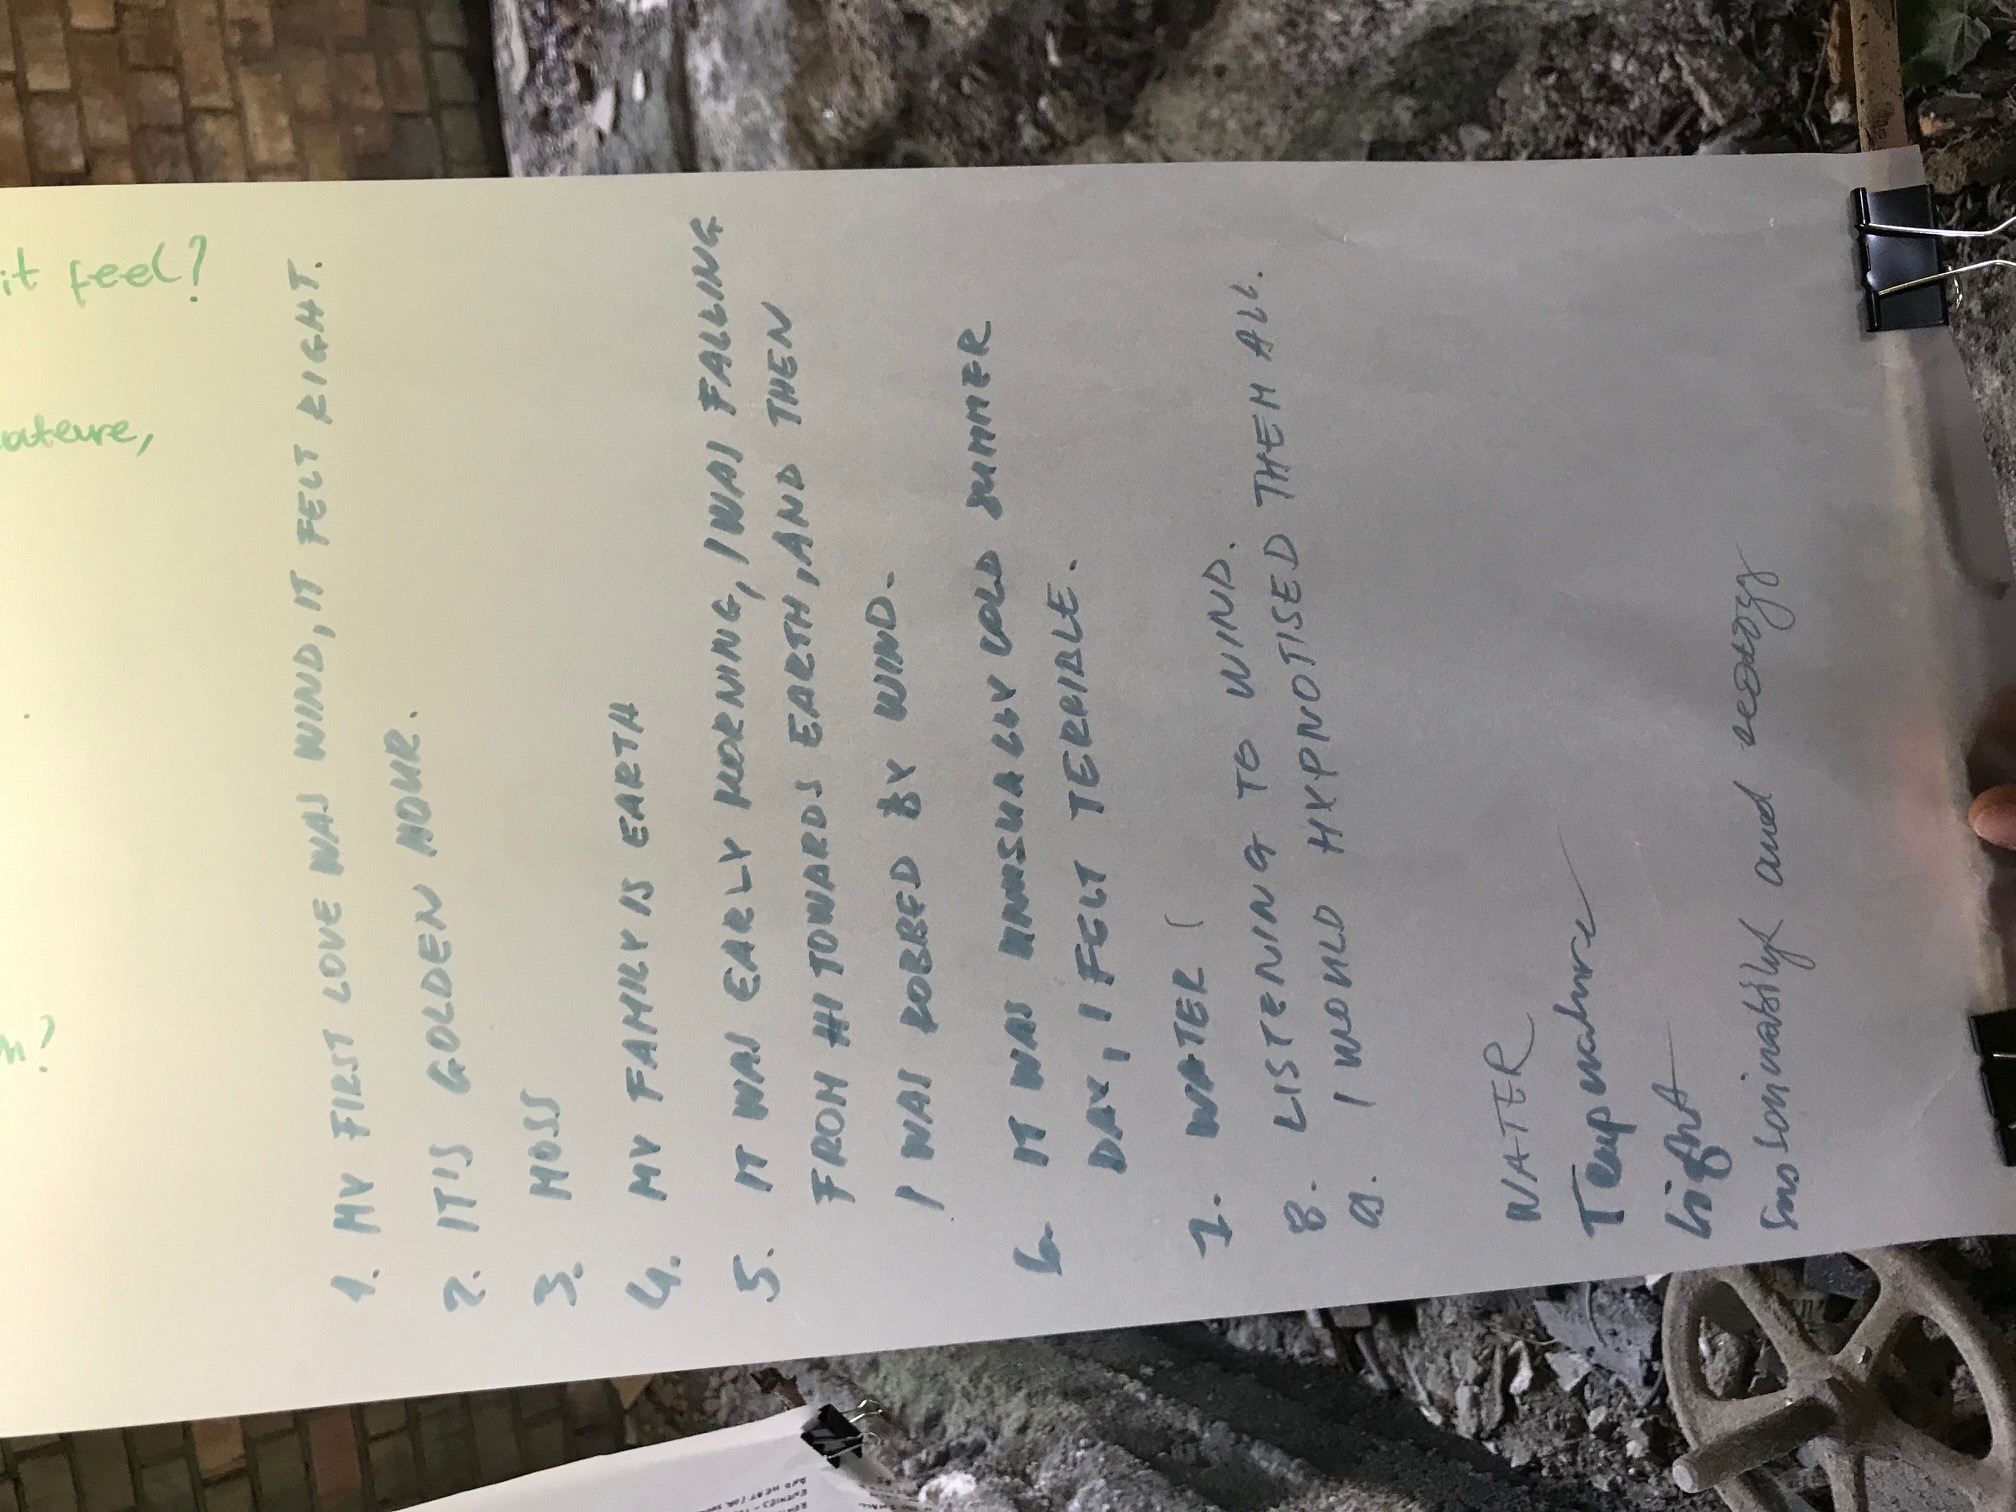 it feel?
m?
1. MY FIRST LOVE WAS WIND, IT FELT RIGHT.
2. IT'S GOLDEN HOUR.
3. MOSS
4. MY FAMILY IS EARTH
5. IT WAS EARLY MORNING, I WAS FALLING
FROM HI TOWARDS EARTH, AND THEN
I WAS ROBBED BY WIND.
6. IT WAS UNUSUALLY COLD SUMMER
DAY, I FELT TERRIBLE.
7. WATER
8. LISTENING TO WIND.
9. I WOULD HYPNOTISED THEM ALL.
WATER
Temperature
Light
and